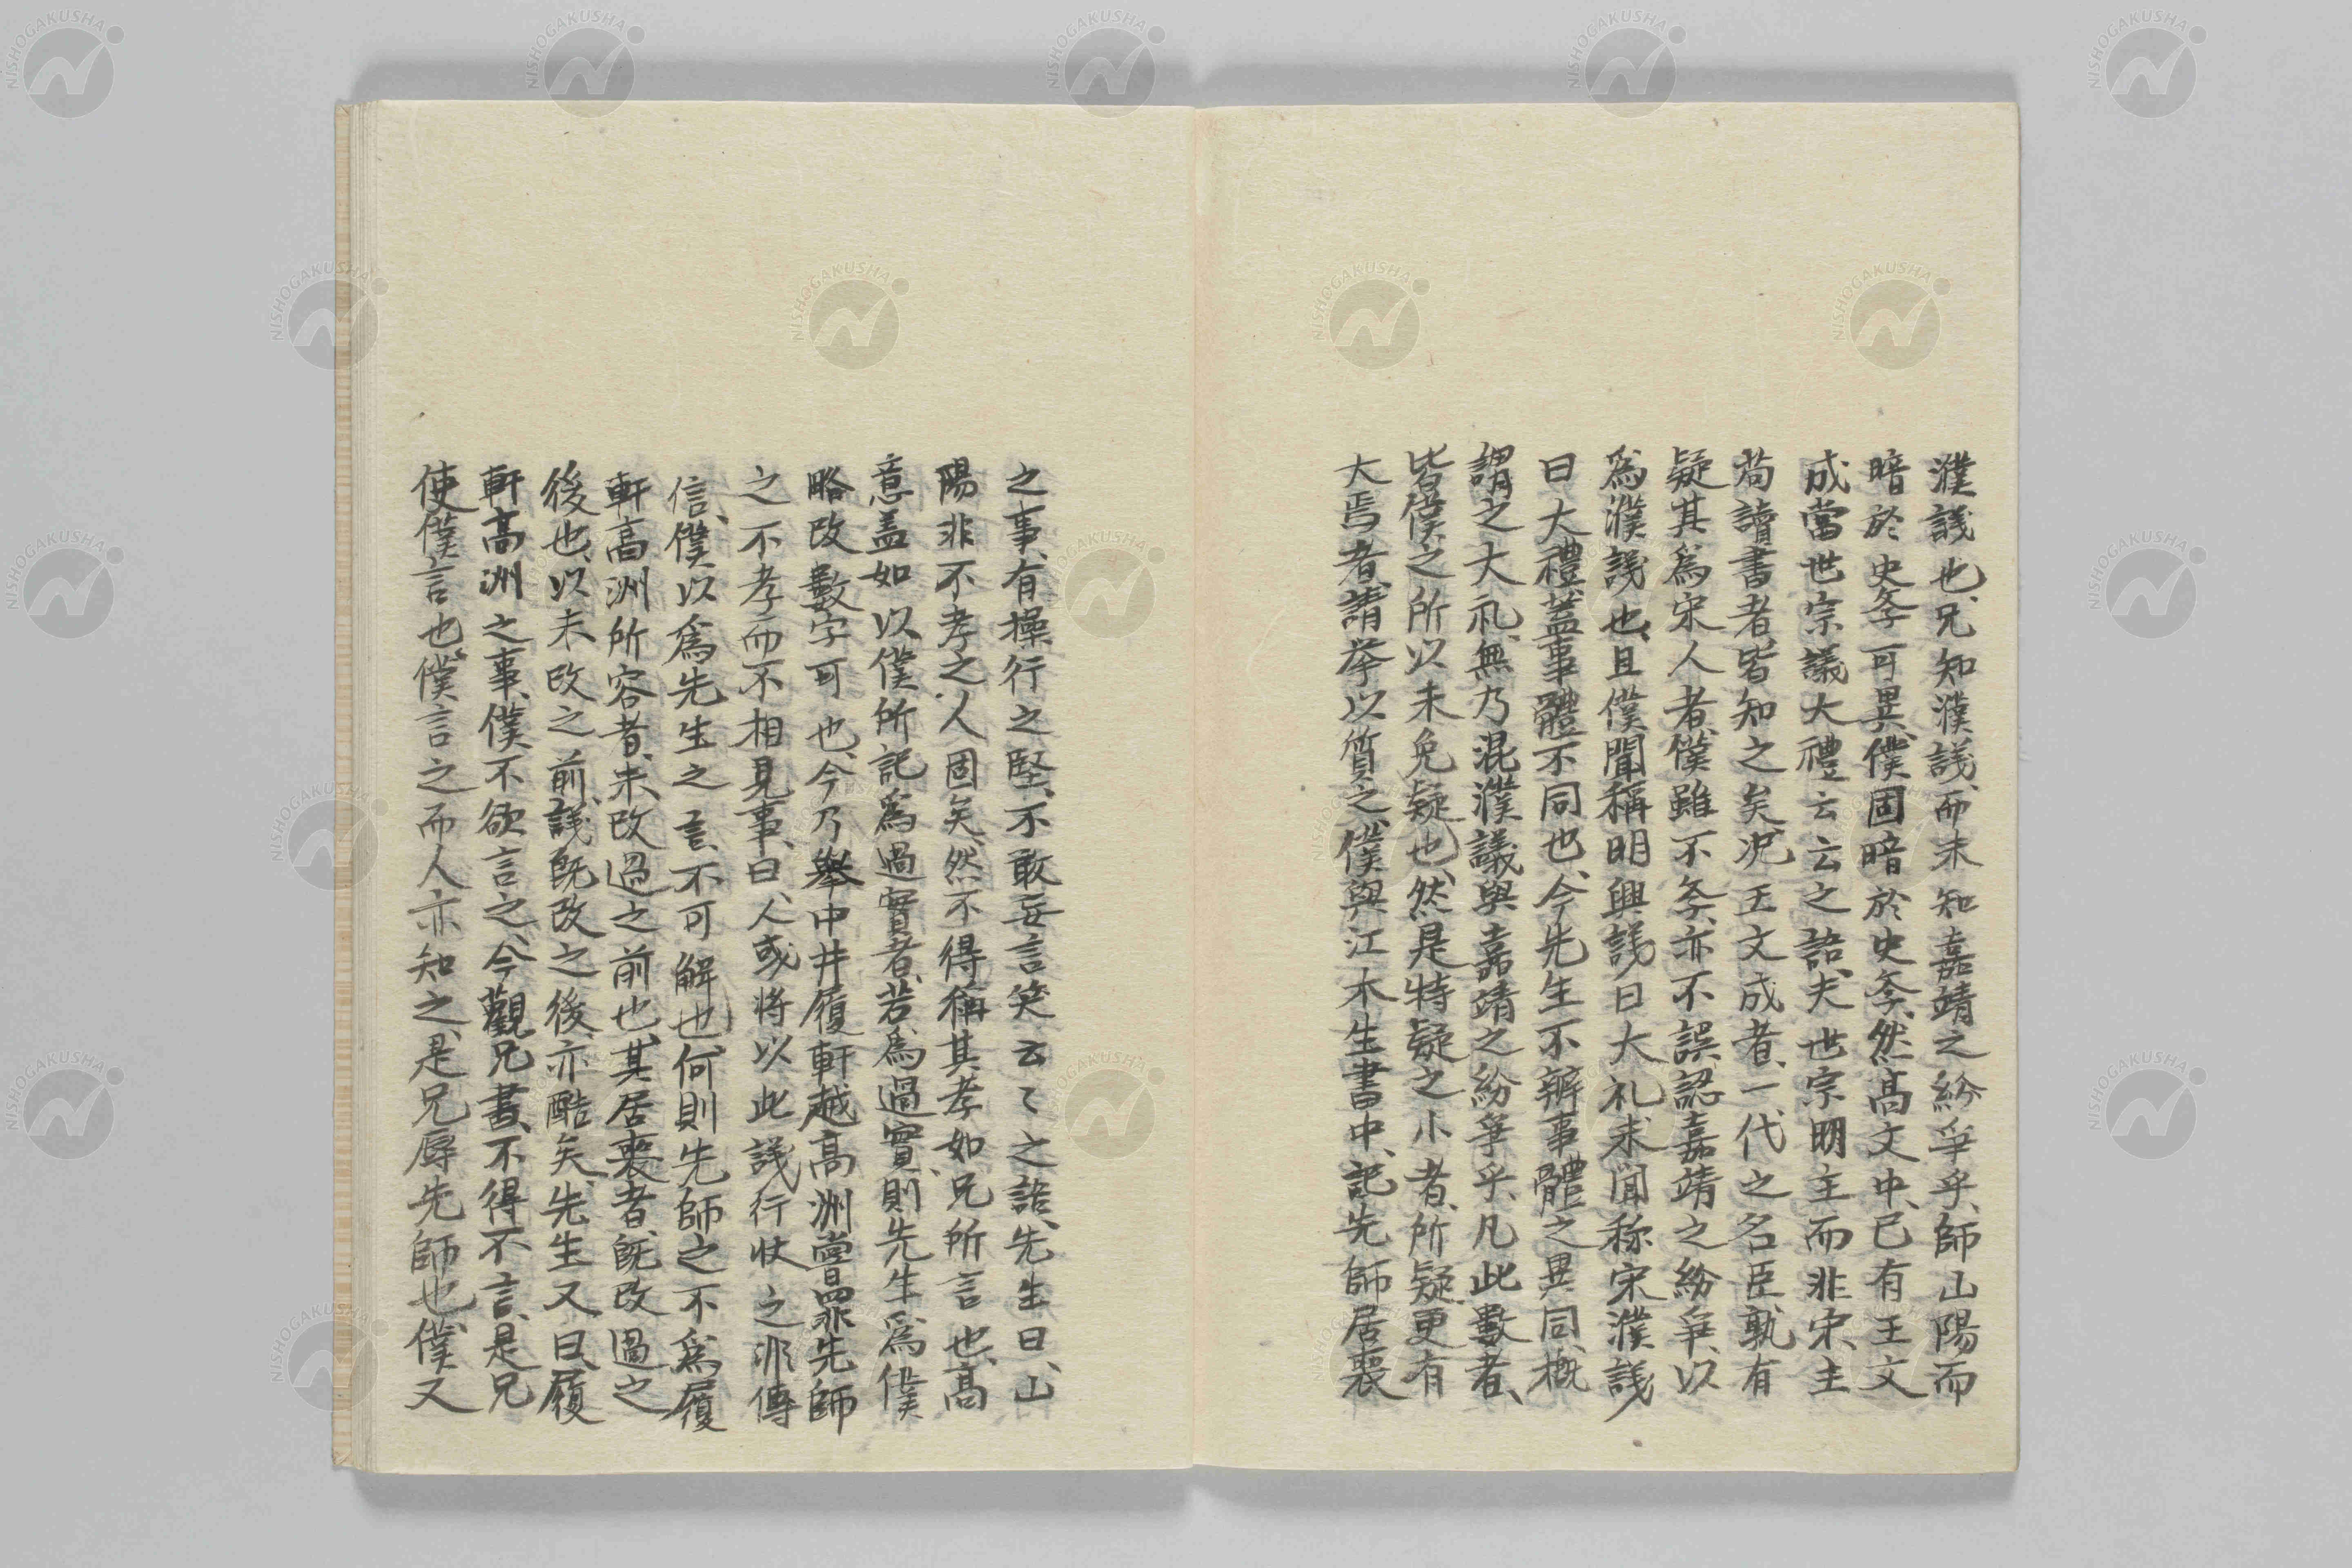 濮議也、兄知濮議、而未知嘉靖之紛爭乎、師山陽而
暗於史筞可異、僕固暗於史筞、然高文中、已有王文
成當世宗議大禮云云之語、夫世宗明主而非宋主
苟讀書者、皆知之矣、况王文成者、一代之名臣、孰有
疑其為宋人者、僕雖不筞、亦不誤認嘉靖之紛爭、以
為濮議也、且僕聞稱明興議曰大礼、未聞称宋濮議
曰大禮、蓋事體不同也、今先生不辨事體之異同、概
謂之大礼、無乃混濮議與嘉靖之紛爭乎、凡此數者、
皆僕之所以未免疑也、然是特疑之小者、所疑更有
大焉者、請挙以質之、僕與江木生書中、記先師居喪
之事、有操行之堅、不敢妄言笑云々之語、先生曰、山
陽非不孝之人固矣、然不得稱其孝如兄所言也、高
意盖如以僕所記為過實者、若為過實、則先生為僕
略改數字可也、今乃舉中井履軒越高洲嘗罪先師
之不孝而不相見事、曰、人或将以此議行状之非傳
信、僕以為先生之言、不可解也、何則先師之不為履
軒高洲所容者、未改過之前也、其居喪者、既改過之
後也、以未改之前、議既改之後、亦酷矣、先生又曰、履
軒高洲之事、僕不欲言之、今觀兄書、不得不言、是兄
使僕言也、僕言之而人亦知之、是兄辱先師也、僕又